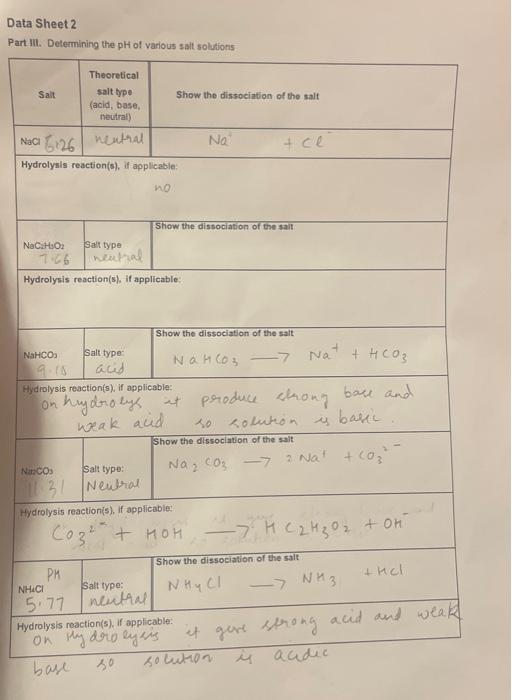 Data Sheet 2
Part III. Determining the pH of various salt solutions
Salt
Theoretical
salt type
(acid, base,
neutral)
Show the dissociation of the salt
NaCl 6.26 neutral Na⁺ + Cl⁻
Hydrolysis reaction(s), if applicable:
no
NaC₂H₃O₂
7.66
Salt type
neutral
Show the dissociation of the salt
Hydrolysis reaction(s), if applicable:
NaHCO₃
9.18
Salt type:
acid
Show the dissociation of the salt
NaHCO₃ → Na⁺ + HCO₃
Hydrolysis reaction(s), if applicable:
on hydrolys it produce strong base and
weak acid so solution is basic.
Na₂CO₃
11.31
Salt type:
Neutral
Show the dissociation of the salt
Na₂CO₃ → 2 Na⁺ + CO₃²⁻
Hydrolysis reaction(s), if applicable:
CO₃²⁻ + HOH → HC₂H₃O₂ + OH⁻
PH
NH₄Cl
5.77
Salt type:
neutral
Show the dissociation of the salt
NH₄Cl → NH₃ + HCl
Hydrolysis reaction(s), if applicable:
on Hydrolysis it give strong acid and weak
base so solution is acidic